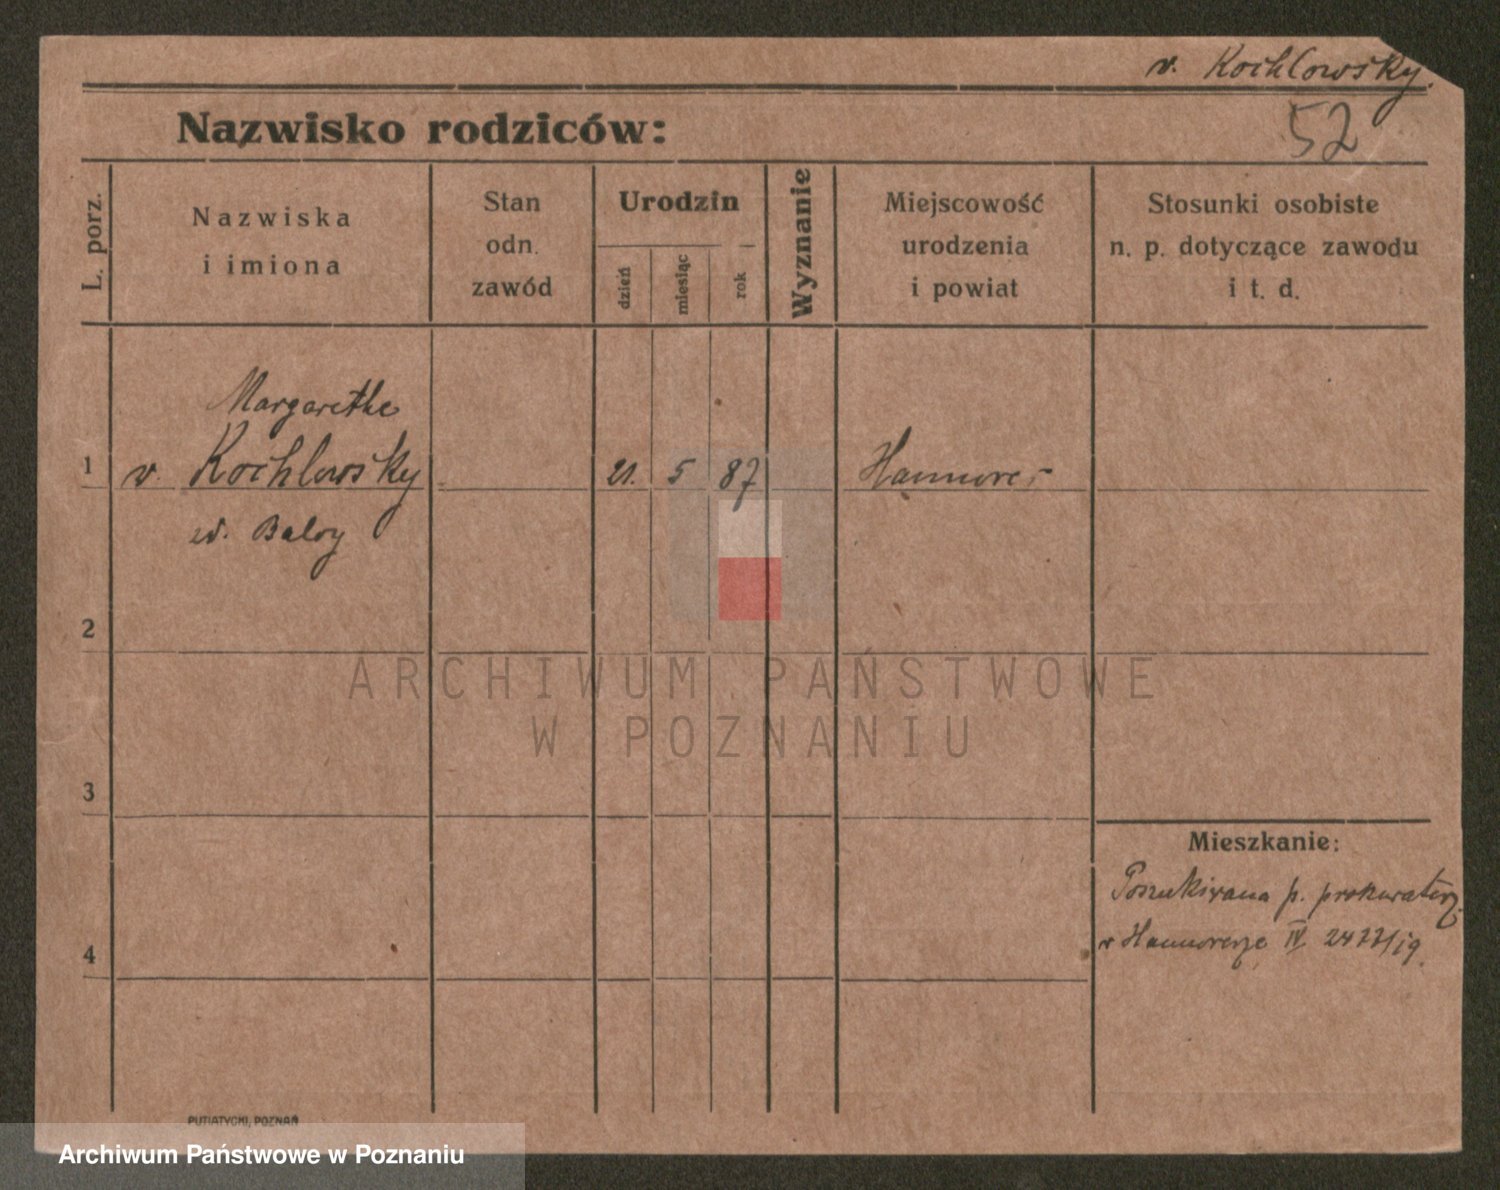 v. Kochlowsky.
52
Nazwisko rodziców:
L. porz.
Nazwiska
i imiona
Stan
odn.
zawód
Urodzin
dzień
miesiąc
rok
Wyznanie
Miejscowość
urodzenia
i powiat
Stosunki osobiste
n. p. dotyczące zawodu
i t. d.
Margarethe
1 v. Kochlowsky 21. 5 87 Hannover
Baloy
2
ARCHIWUM PAŃSTWOWE
W POZNANIU
3
Mieszkanie:
Poszukiwana p. prokuratorj.
v Hannoverze IV 2477/19.
4
PUTIATYCKI, POZNAŃ
Archiwum Państwowe w Poznaniu